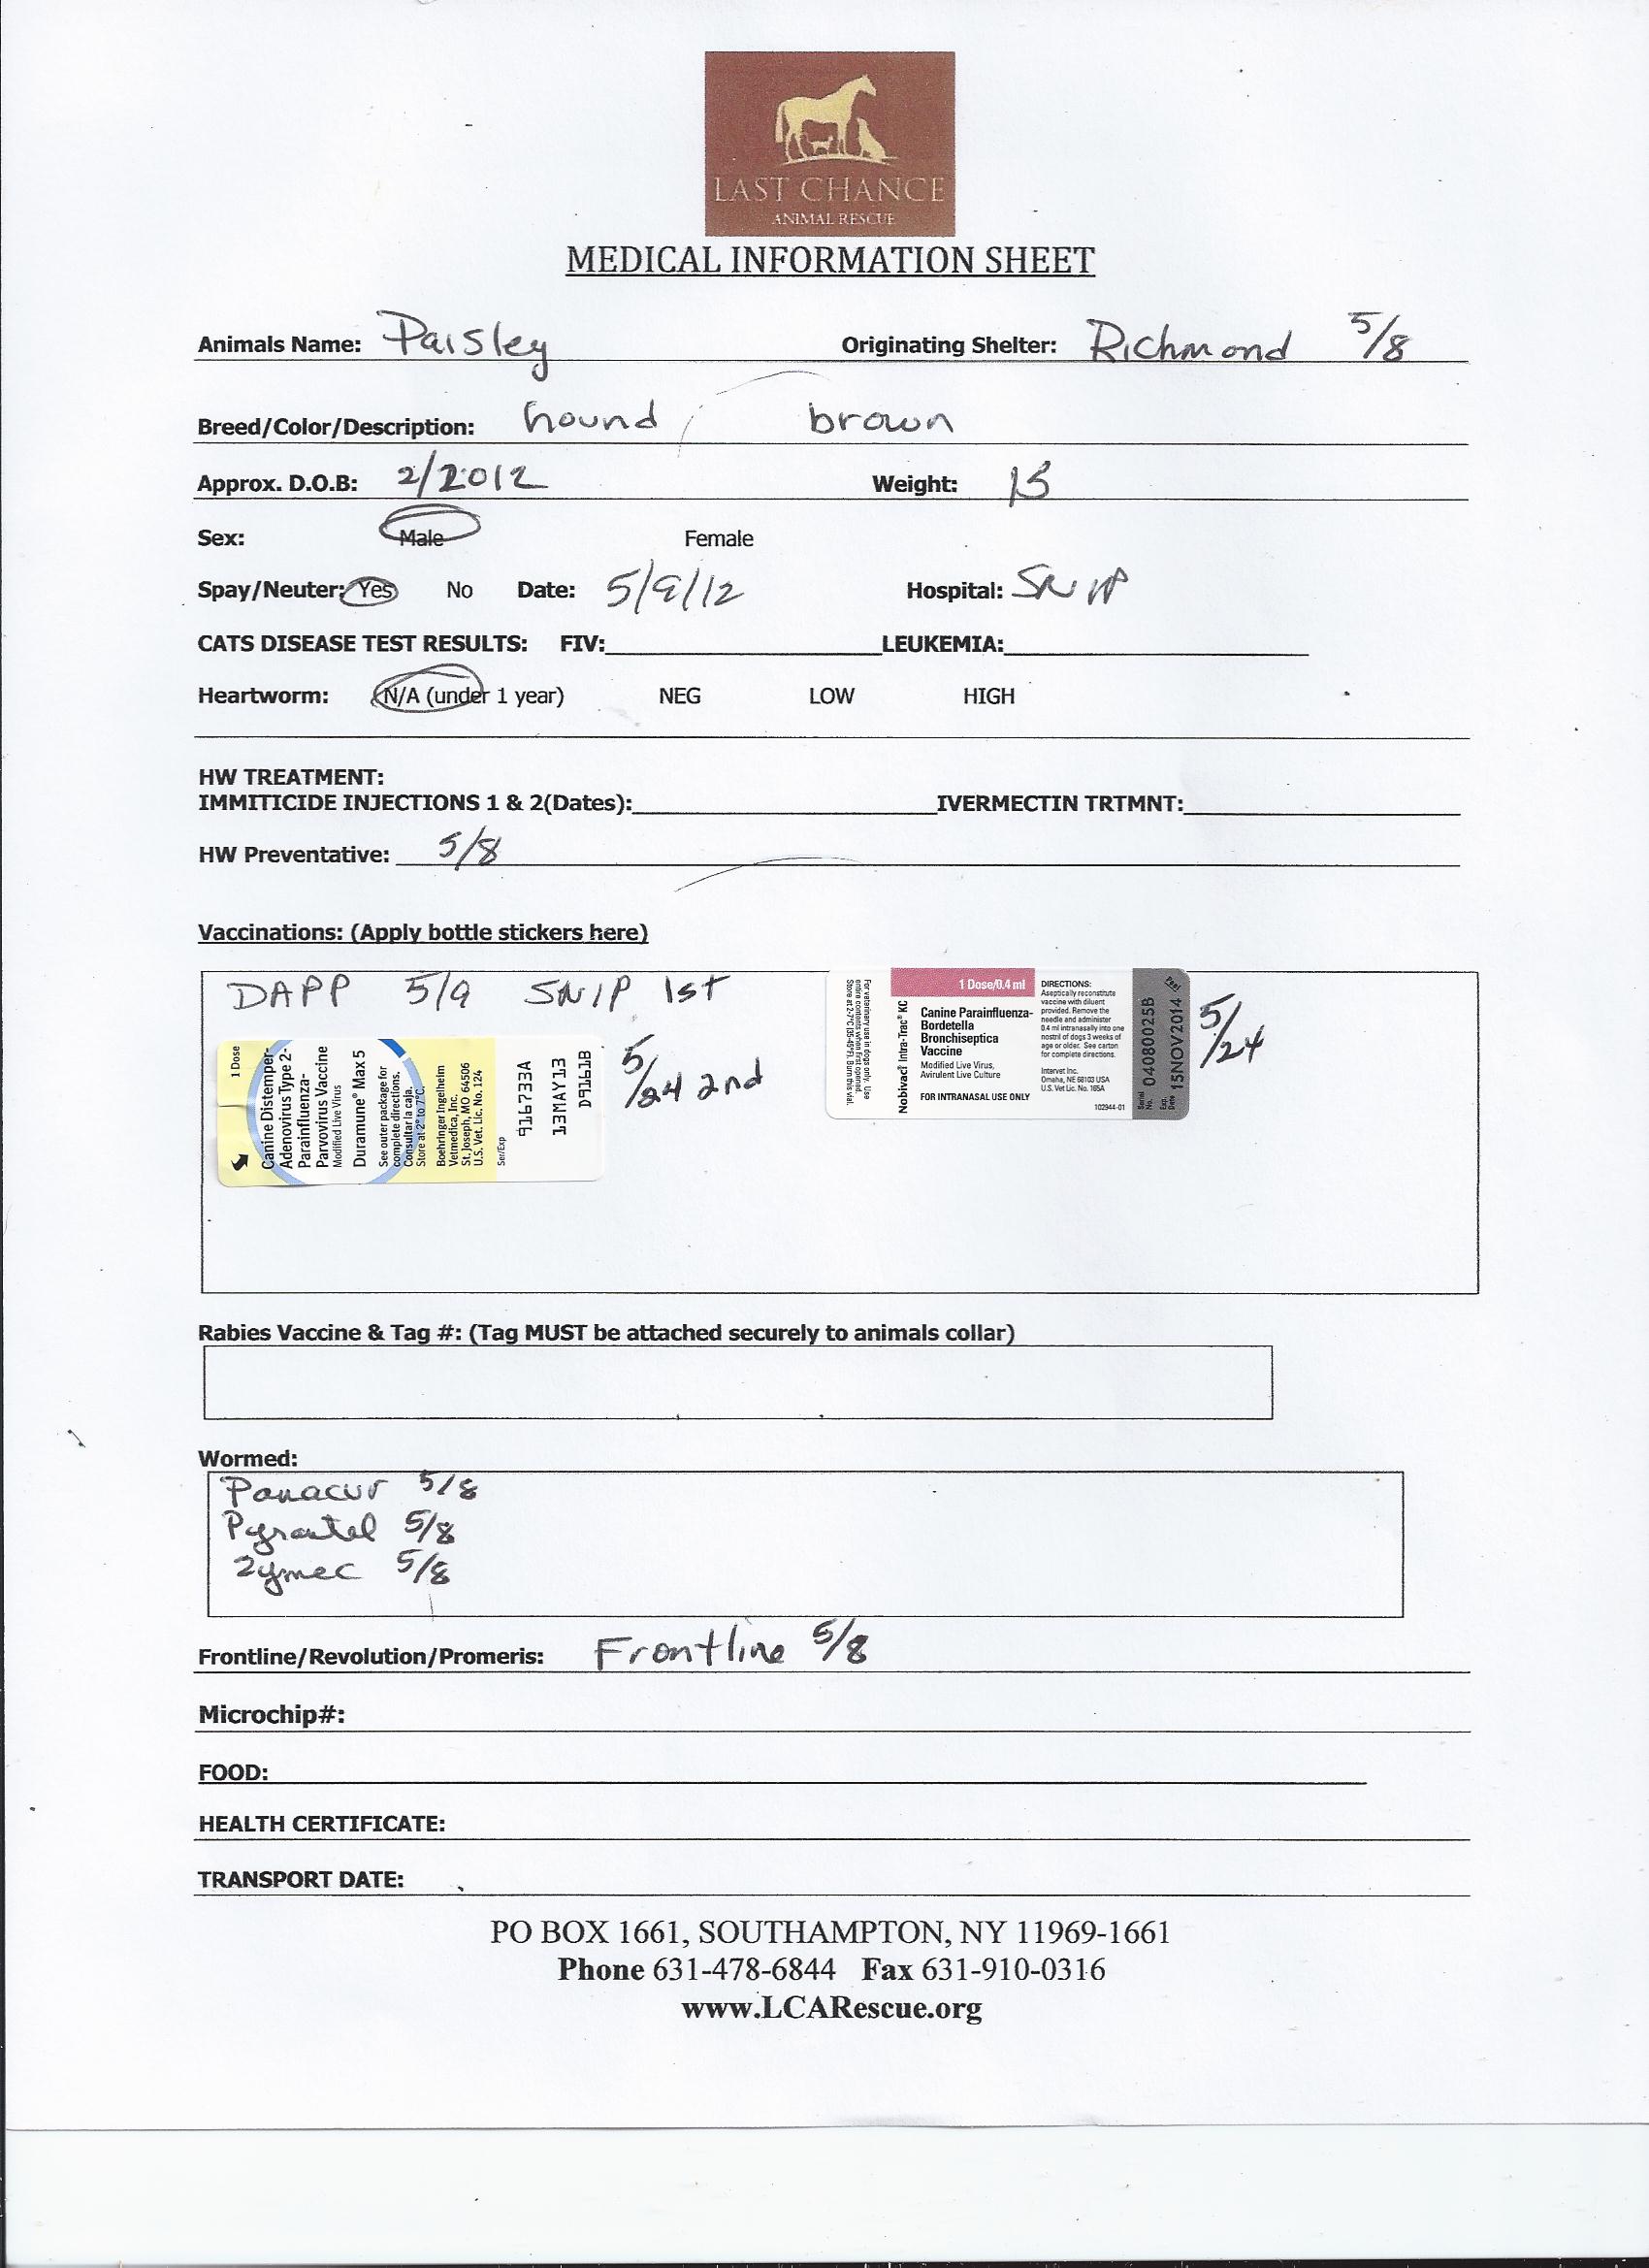 LAST CHANCE
ANIMAL RESCUE
MEDICAL INFORMATION SHEET
Animals Name: Paisley Originating Shelter: Richmond 5/8
Breed/Color/Description: hound / brown
Approx. D.O.B: 2/2012 Weight: 15
Sex: Male Female
Spay/Neuter: Yes No Date: 5/9/12 Hospital: SNIP
CATS DISEASE TEST RESULTS: FIV: LEUKEMIA:
Heartworm: N/A (under 1 year) NEG LOW HIGH
HW TREATMENT:
IMMITICIDE INJECTIONS 1 & 2(Dates): IVERMECTIN TRTMNT:
HW Preventative: 5/8
Vaccinations: (Apply bottle stickers here)
DAPP 5/9 SNIP 1st
1 Dose
Canine Distemper-
Adenovirus Type 2-
Parainfluenza-
Parvovirus Vaccine
Modified Live Virus
Duramune® Max 5
See outer package for
complete directions.
Consultar la caja.
Store at 2° to 7°C.
Boehringer Ingelheim
Vetmedica, Inc.
St. Joseph, MO 64506
U.S. Vet. Lic. No. 124
Ser/Exp
916733A
13MAY13
D9161B
5/24 2nd
For veterinary use in dogs only. Use
entire contents when first opened.
Store at 2-7°C (35-45°F). Burn this vial.
Nobivac® Intra-Trac® KC
1 Dose/0.4 ml
Canine Parainfluenza-
Bordetella
Bronchiseptica
Vaccine
Modified Live Virus,
Avirulent Live Culture
FOR INTRANASAL USE ONLY
DIRECTIONS:
Aseptically reconstitute
vaccine with diluent
provided. Remove the
needle and administer
0.4 ml intranasally into one
nostril of dogs 3 weeks of
age or older. See carton
for complete directions.
Intervet Inc.
Omaha, NE 68103 USA
U.S. Vet Lic. No. 165A
102944-01
Serial No. 04080025B
Exp. Date 15NOV2014
Peel
5/24
Rabies Vaccine & Tag #: (Tag MUST be attached securely to animals collar)
Wormed:
Panacur 5/8
Pyrantel 5/8
Zymec 5/8
Frontline/Revolution/Promeris: Frontline 5/8
Microchip#:
FOOD:
HEALTH CERTIFICATE:
TRANSPORT DATE:
PO BOX 1661, SOUTHAMPTON, NY 11969-1661
Phone 631-478-6844 Fax 631-910-0316
www.LCARescue.org